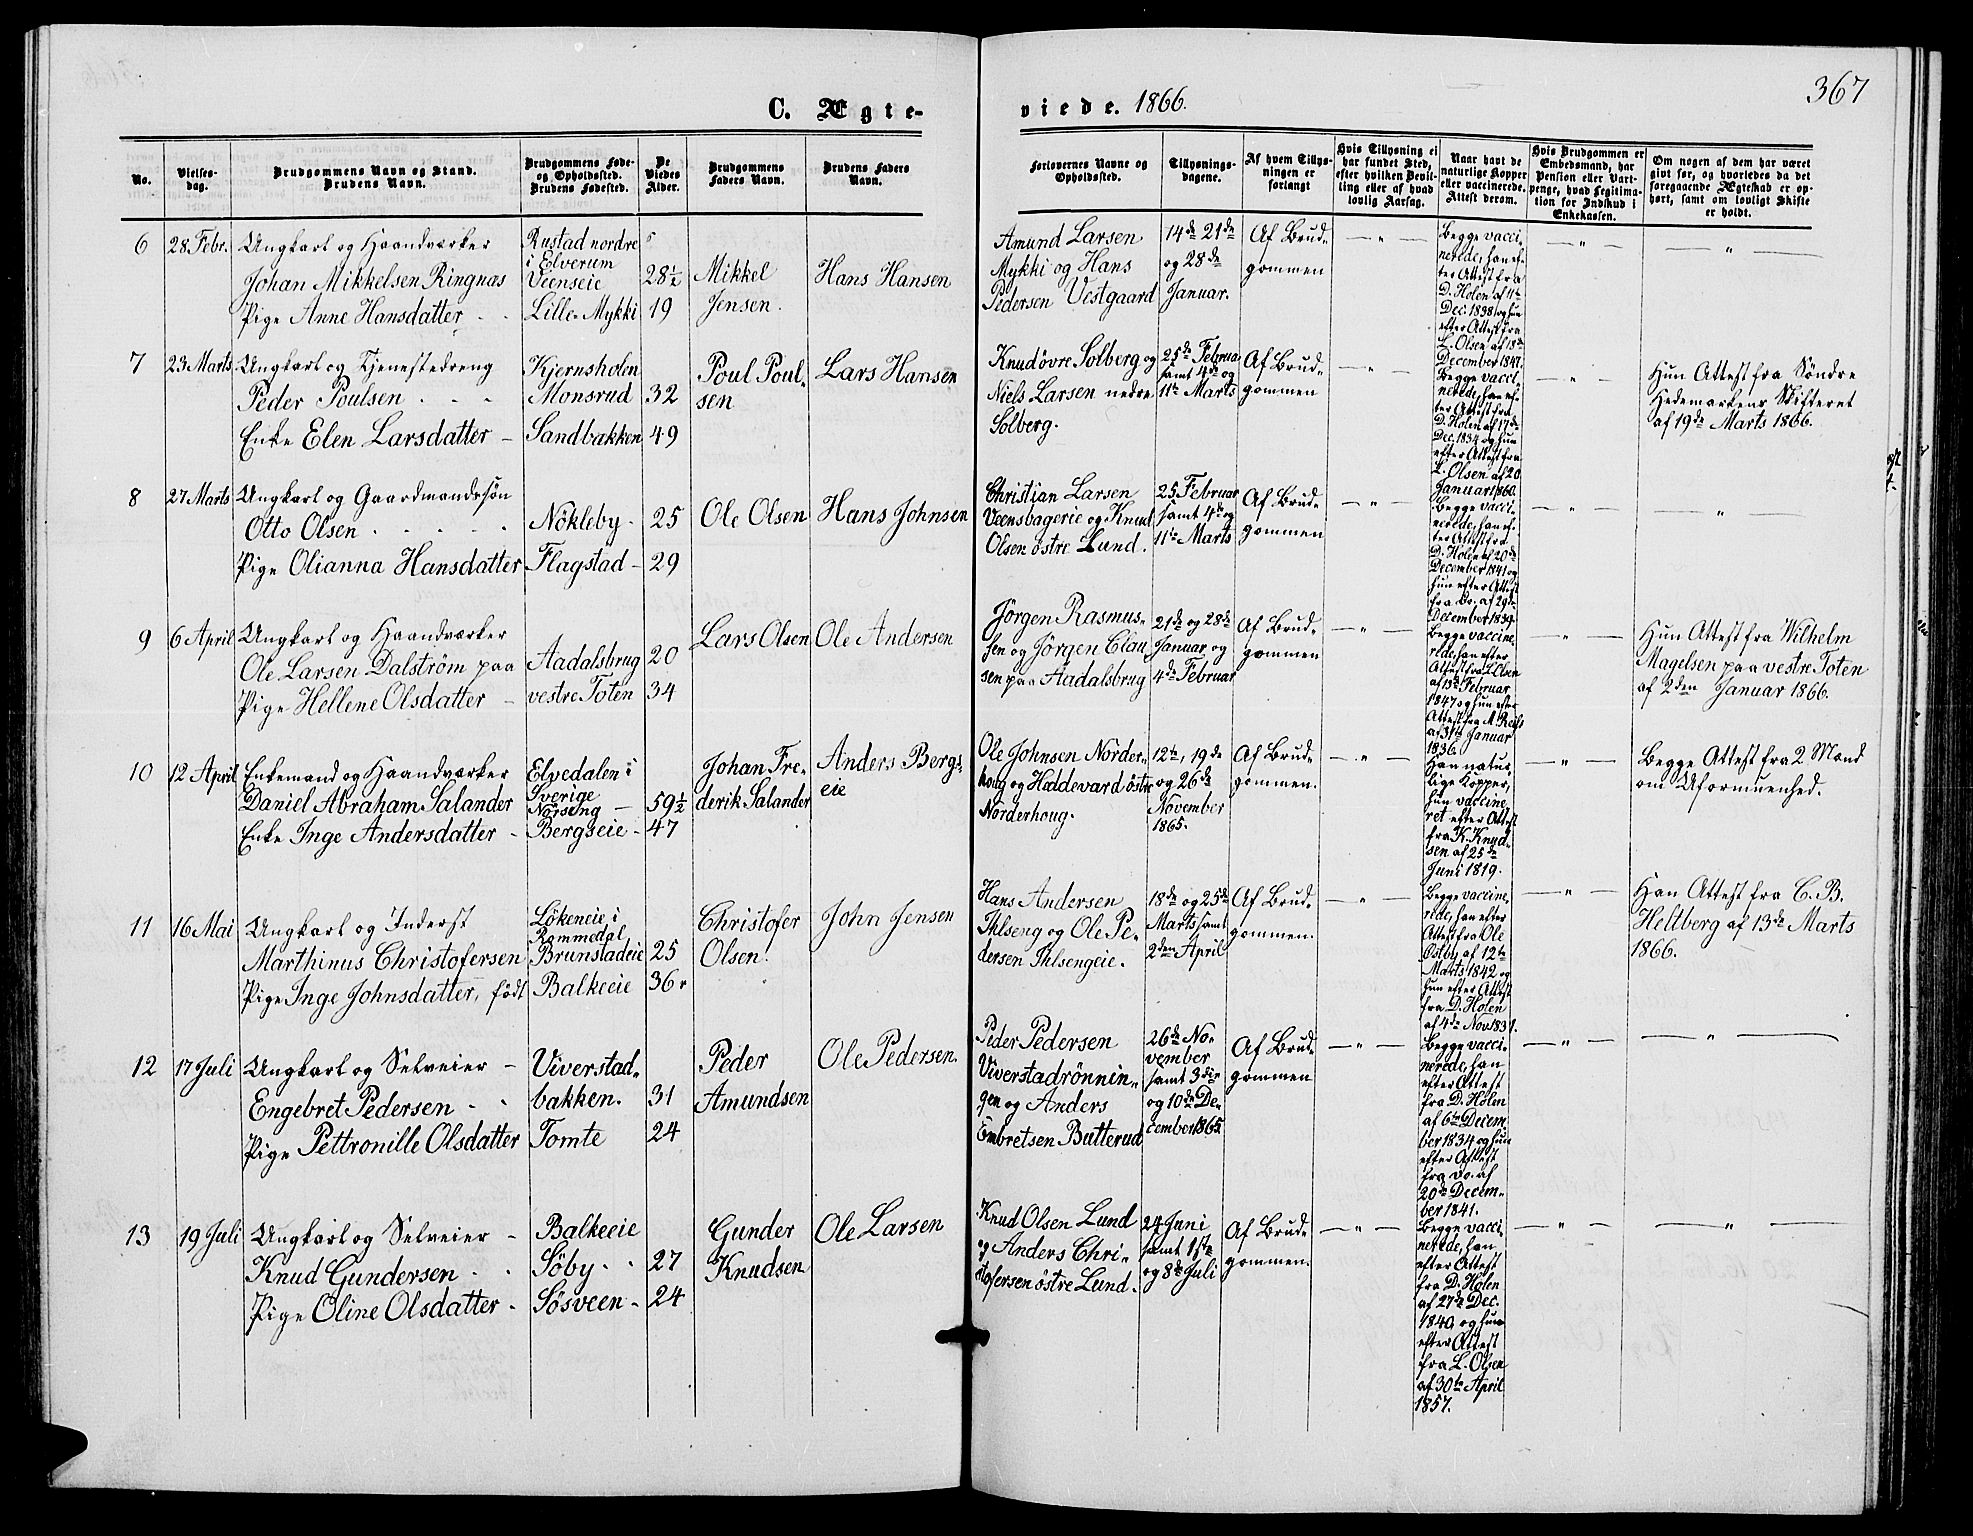 367
C. Ægte-
viede. 1866.
No.
Vielses-
dag.
Brudgommens Navn og Stand.
Brudens Navn.
Brudgommens Føde-
og Opholdssted.
Brudens Fødested.
De
Viedes
Alder.
Brudgommens
Faders Navn.
Brudens Faders
Navn.
Forlovernes Navne og
Opholdssted.
Tillysnings-
dagene.
Af hvem Tillys-
ningen er
forlangt
Hvis Tillysning ei
har fundet Sted,
efter hvilken Bevil-
ling eller af hvad
lovlig Aarsag.
Naar havt de
naturlige Kopper
eller vaccinerede.
Attest derom.
Hvis Brudgommen er
Embedsmand, har
Pension eller Vart-
penge, hvad Legitima-
tion for Indskud i
Enkekassen.
Om nogen af dem har været
gift før, og hvorledes da det
foregaaende Ægteskab er op-
hørt, samt om lovligt Skifte
er holdt.
6
28. Febr.
Ungkarl og Haandværker
Johan Mikkelsen Ringnæs
Pige Anne Hansdatter
Rustad nordre
i Elverum
Veenseie
Lille-Mykki
28½
19
Mikkel
Jensen.
Hans Hansen
Amund Larsen
Mykki og Hans
Pedersen Vestgaard
14de 21de
og 28de
Januar.
Af Brud-
gommen
— " —
Begge vacci-
nerede, han ef-
ter Attest fra
D. Holen af 11te
Dec. 1838 og hun
efter Attest fra
L. Olsen af 18de
December 1847.
— " —
— " —
7
23 Marts
Ungkarl og Tjenestedreng
Peder Poulsen
Enke Elen Larsdatter —
Kjernsholen
Monsrud
Sandbakken
32
49
Poul Poul-
sen
Lars Hansen
Knud øvre Solberg og
Niels Larsen nedre
Solberg.
25de Februar
samt 4de og
11te Marts
Af Brud-
gommen
— " —
Begge vacci-
nerede, han ef-
ter Attest fra
D. Holen af 17de
Dec. 1834 og hun
efter Attest fra
L. Olsen af 20
Januar 1860.
— " —
Hun Attest fra Søndre
Hedemarkens Skifteret
af 19de Marts 1866.
8
27 Marts
Ungkarl og Gaardmandssøn
Otto Olsen
Pige Olianna Hansdatter
Nökleby
Flagstad
25
29
Ole Olsen
Hans Johnsen
Christian Larsen
Veensbagerie og Knud
Olsen östre Lund.
25 Februar
samt 4de og
11te Marts
Af Brud-
gommen
— " —
Begge vacci-
nerede, han ef-
ter Attest fra
D. Holen af 20de
December 1841 og
hun efter Attest
fra Do. af 29de
December 1839.
— " —
— " —
9
6 April
Ungkarl og Haandværker
Ole Larsen Dalström paa
Pige Hellene Olsdatter —
Aadalsbrug
vestre Toten
20
34
Lars Olsen
Ole Andersen
Jörgen Rasmus-
sen og Jörgen Clau-
sen paa Aadalsbrug
21de og 28de
Januar og
4de Februar
Af Brud-
gommen
— " —
Begge vaccine-
rede, han efter
Attest fra L. Olsen
af 13de Februar
1847 og hun efter
Attest fra M. Reiss
af 31te Januar
1836.
— " —
Hun Attest fra Wilhelm
Magelsen paa vestre Toten
af 2den Januar 1866.
10
12 April
Enkemand og Haandværker
Daniel Abraham Salander
Enke Inge Andersdatter —
Elvedalen i
Sverige
Norseng —
Bergseie —
59½
47
Johan Fre-
derik Salander
Anders Bergs-
eie
Ole Johnsen Norder-
houg og Heddevard östre
Norderhoug.
12te, 19de
og 26de
November
1865.
Af Brud-
gommen.
— " —
Han natur-
lige Kopper,
hun vaccine-
ret efter Attest
fra K. Knud-
sen af 25de
Juni 1819.
— " —
Begge Attest fra 2 Mænd
om Uformuenhed.
11
16 Mai
Ungkarl og Inderst
Marthinus Christofersen
Pige Inge Johnsdatter, født
Lökeneie i
Rommedal
Brunstadeie
Balkeeie
25
36
Christofer
Olsen.
John Jensen
Hans Andersen
Ihlseng og Ole Pe-
dersen Ihlsengeie.
18de og 25de
Marts samt
2den April
Af Brud-
gommen.
— " —
Begge vaccine-
rede, han efter
Attest fra Ole
Östby af 12te
Marts 1842 og
hun efter Attest
fra D. Holen
af 4de Nov. 1831.
— " —
Han Attest fra C. B.
Heltberg af 13de Marts
1866.
12
17 Juli
Ungkarl og Selveier —
Engebret Pedersen
Pige Pettronille Olsdatter
Viverstad-
bakken.
Tomte
31
24
Peder
Amundsen
Ole Pedersen.
Peder Pedersen
Viverstadrönnin-
gen og Anders
Embretsen Butterud
26de No-
vember
samt 3die
og 10de De-
cember 1865
Af Brud-
gommen
— " —
Begge vacci-
nerede, han
efter Attest
fra D. Holen
af 6te Decem-
ber 1834 og hun
efter Attest
fra Do. af
20de Decem-
ber 1841.
— " —
— " —
13
19 Juli
Ungkarl og Selveier —
Knud Gundersen
Pige Oline Olsdatter
Balkeeie
Söby
Sösveen
27
24
Gunder
Knudsen
Ole Larsen
Knud Olsen Lund
og Anders Chri-
stofersen östre Lund.
24 Juni
samt 1ste
og 8de Juli
Af Brud-
gommen.
— " —
Begge vacci-
nerede, han
efter Attest
fra D. Holen
af 27de Dec.
1840, og hun
efter Attest
fra L. Olsen
af 30te April
1857.
— " —
— " —